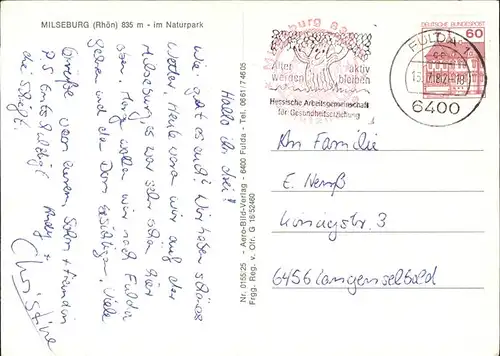 MILSEBURG (Rhön) 835 m - im Naturpark
Hallo ihr drei!
Wie geht es euch? Wir haben schönes
Wetter. Heute waren wir auf der
Milseburg, es war sehr schön hier
oben. Morgen wollen wir nach Fulda
fahren und den Dom besichtigen. Viele
Grüße von eurem Sohn + Freundin
Andy +
Christine
P.S. Entschuldigt
die Schrift!
Nr. 0155:25 - Aero-Bild-Verlag - 6400 Fulda - Tel. 0661/74605
Frgg. Reg. v. Ofr. G 16/52460
Älter werden
aktiv bleiben
Hessische Arbeitsgemeinschaft
für Gesundheitserziehung
DEUTSCHE BUNDESPOST
60
FULDA 1
6400
An Familie
E. Nemß
Königstr. 3
6456 Langenselbold